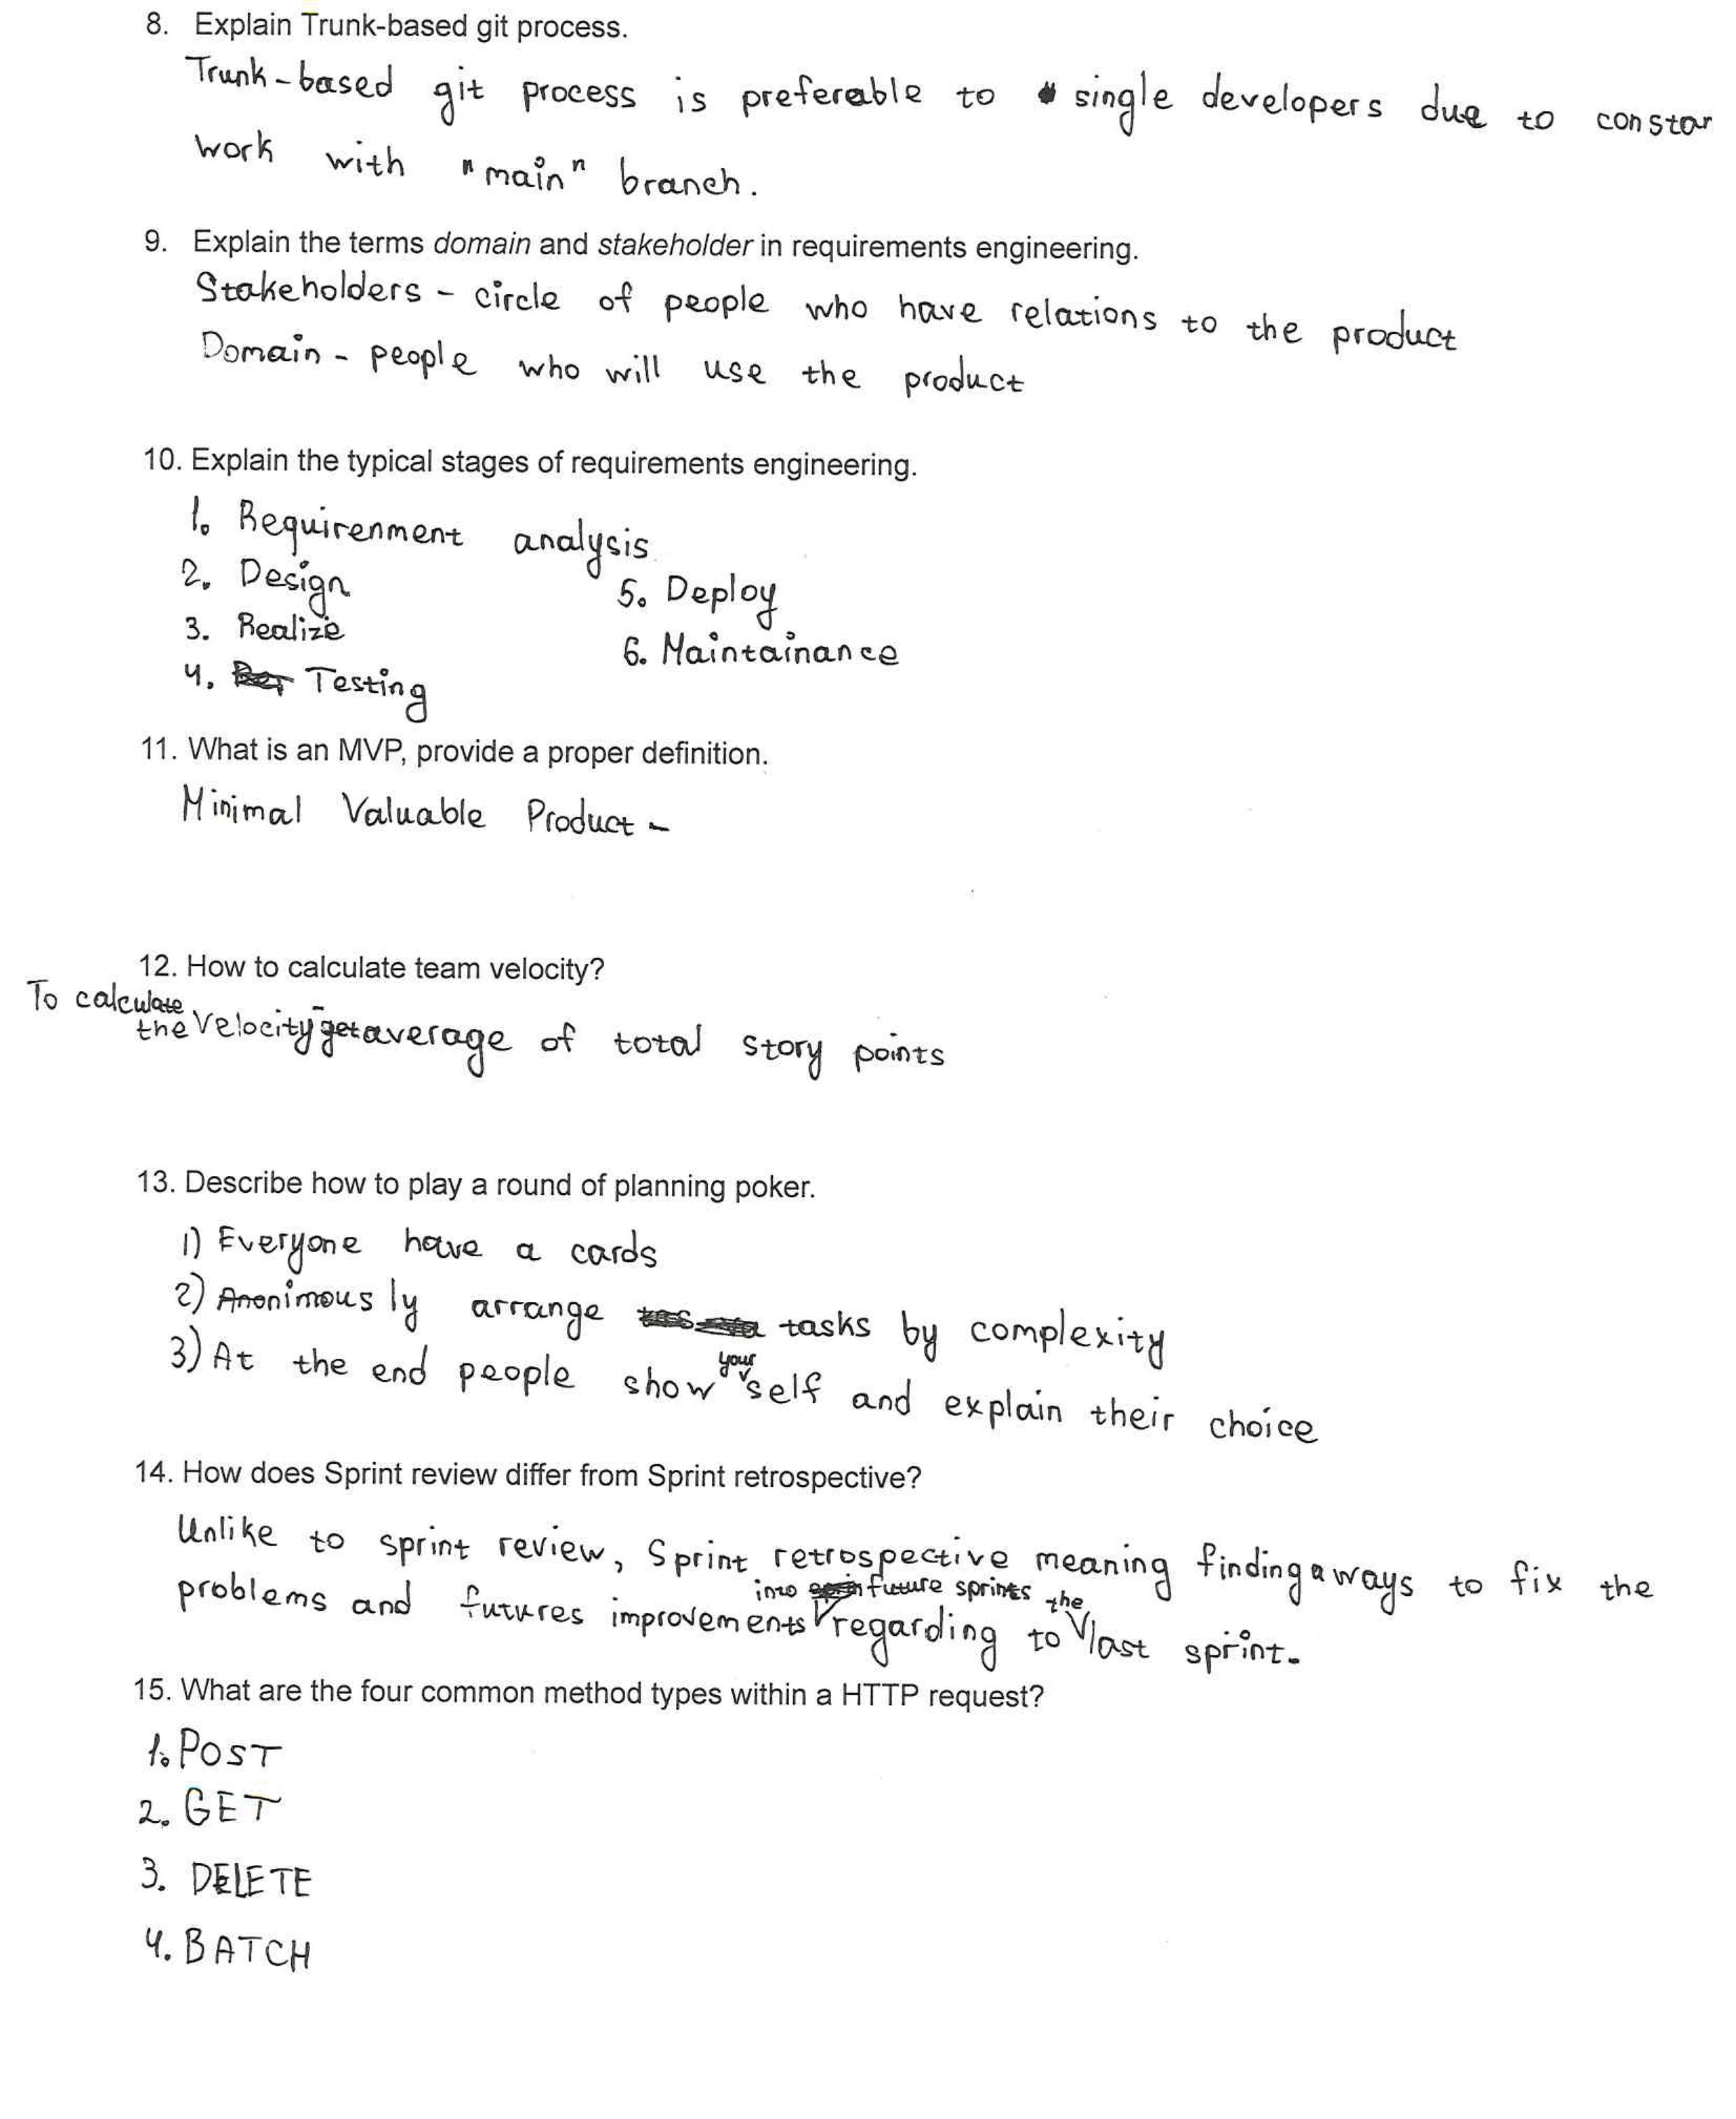 8. Explain Trunk-based git process.
Trunk-based git process is preferable to single developers due to constar
work with "main" branch.
9. Explain the terms domain and stakeholder in requirements engineering.
Stakeholders - circle of people who have relations to the product
Domain - people who will use the product
10. Explain the typical stages of requirements engineering.
1. Requirenment analysis
2. Design
3. Realize
4. Testing
5. Deploy
6. Maintainance
11. What is an MVP, provide a proper definition.
Minimal Valuable Product -
12. How to calculate team velocity?
To calculate
the velocity - get average of total story points
13. Describe how to play a round of planning poker.
1) Everyone have a cards
2) Anonimously arrange tasks by complexity
3) At the end people show your self and explain their choice
14. How does Sprint review differ from Sprint retrospective?
Unlike to sprint review, Sprint retrospective meaning finding a ways to fix the
problems and futures improvements into future sprints regarding to the last sprint.
15. What are the four common method types within a HTTP request?
1. POST
2. GET
3. DELETE
4. BATCH